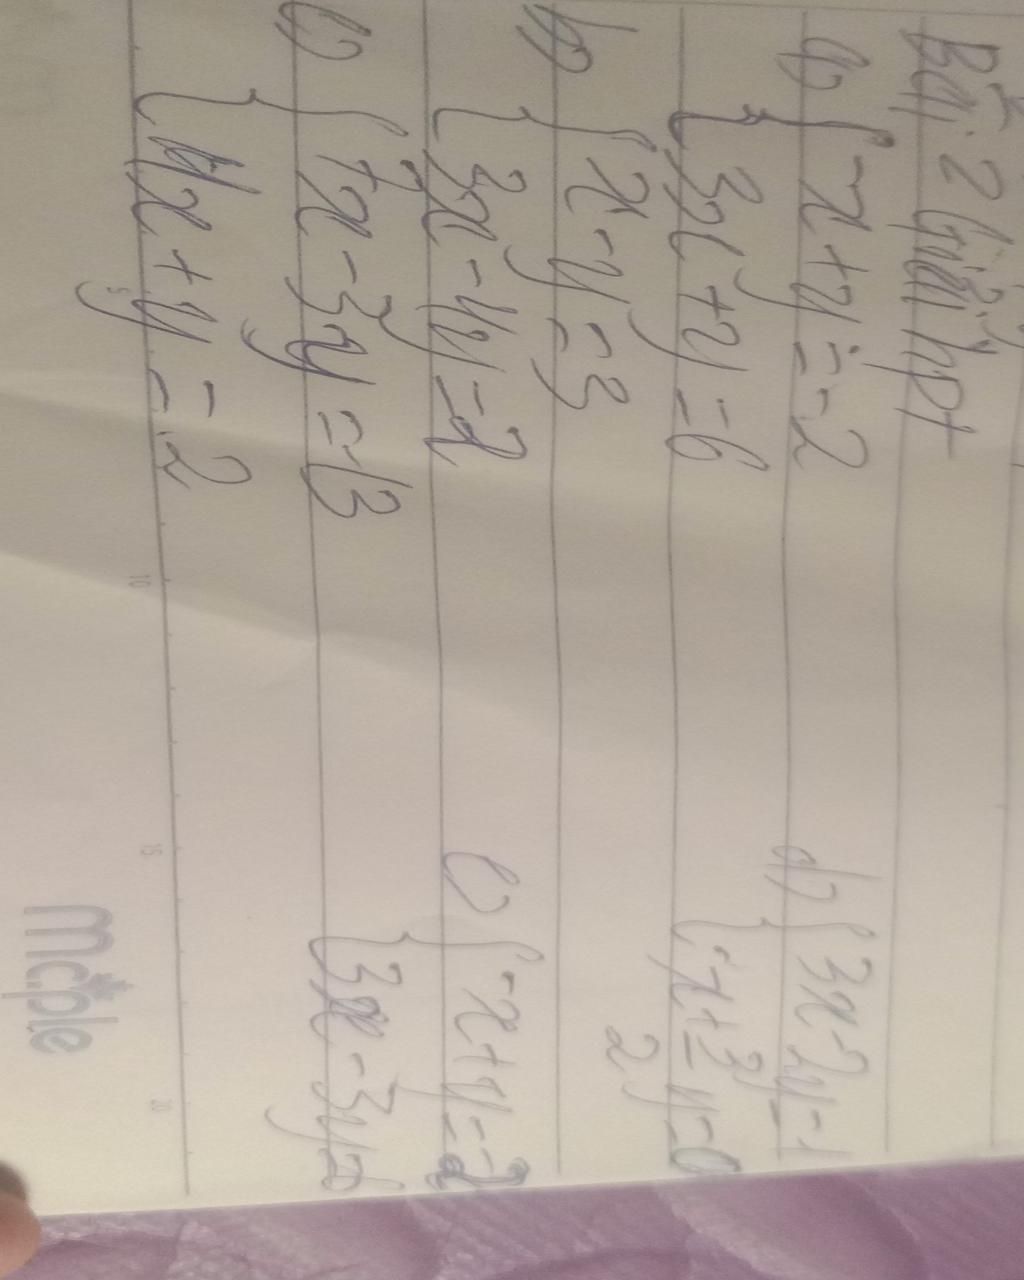 Bài 2 Giải hpt
a) { -x + y = -2
3x + y = 6
b) { x - y = 3
3x - 4y = 2
c) { 7x - 3y = 13
4x + y = 2
d) { 3x - 2y = 1
-x + 3/2 y = 0
e) { -x + y = -2
3x - 3y =
5
10
15
20
Mcple